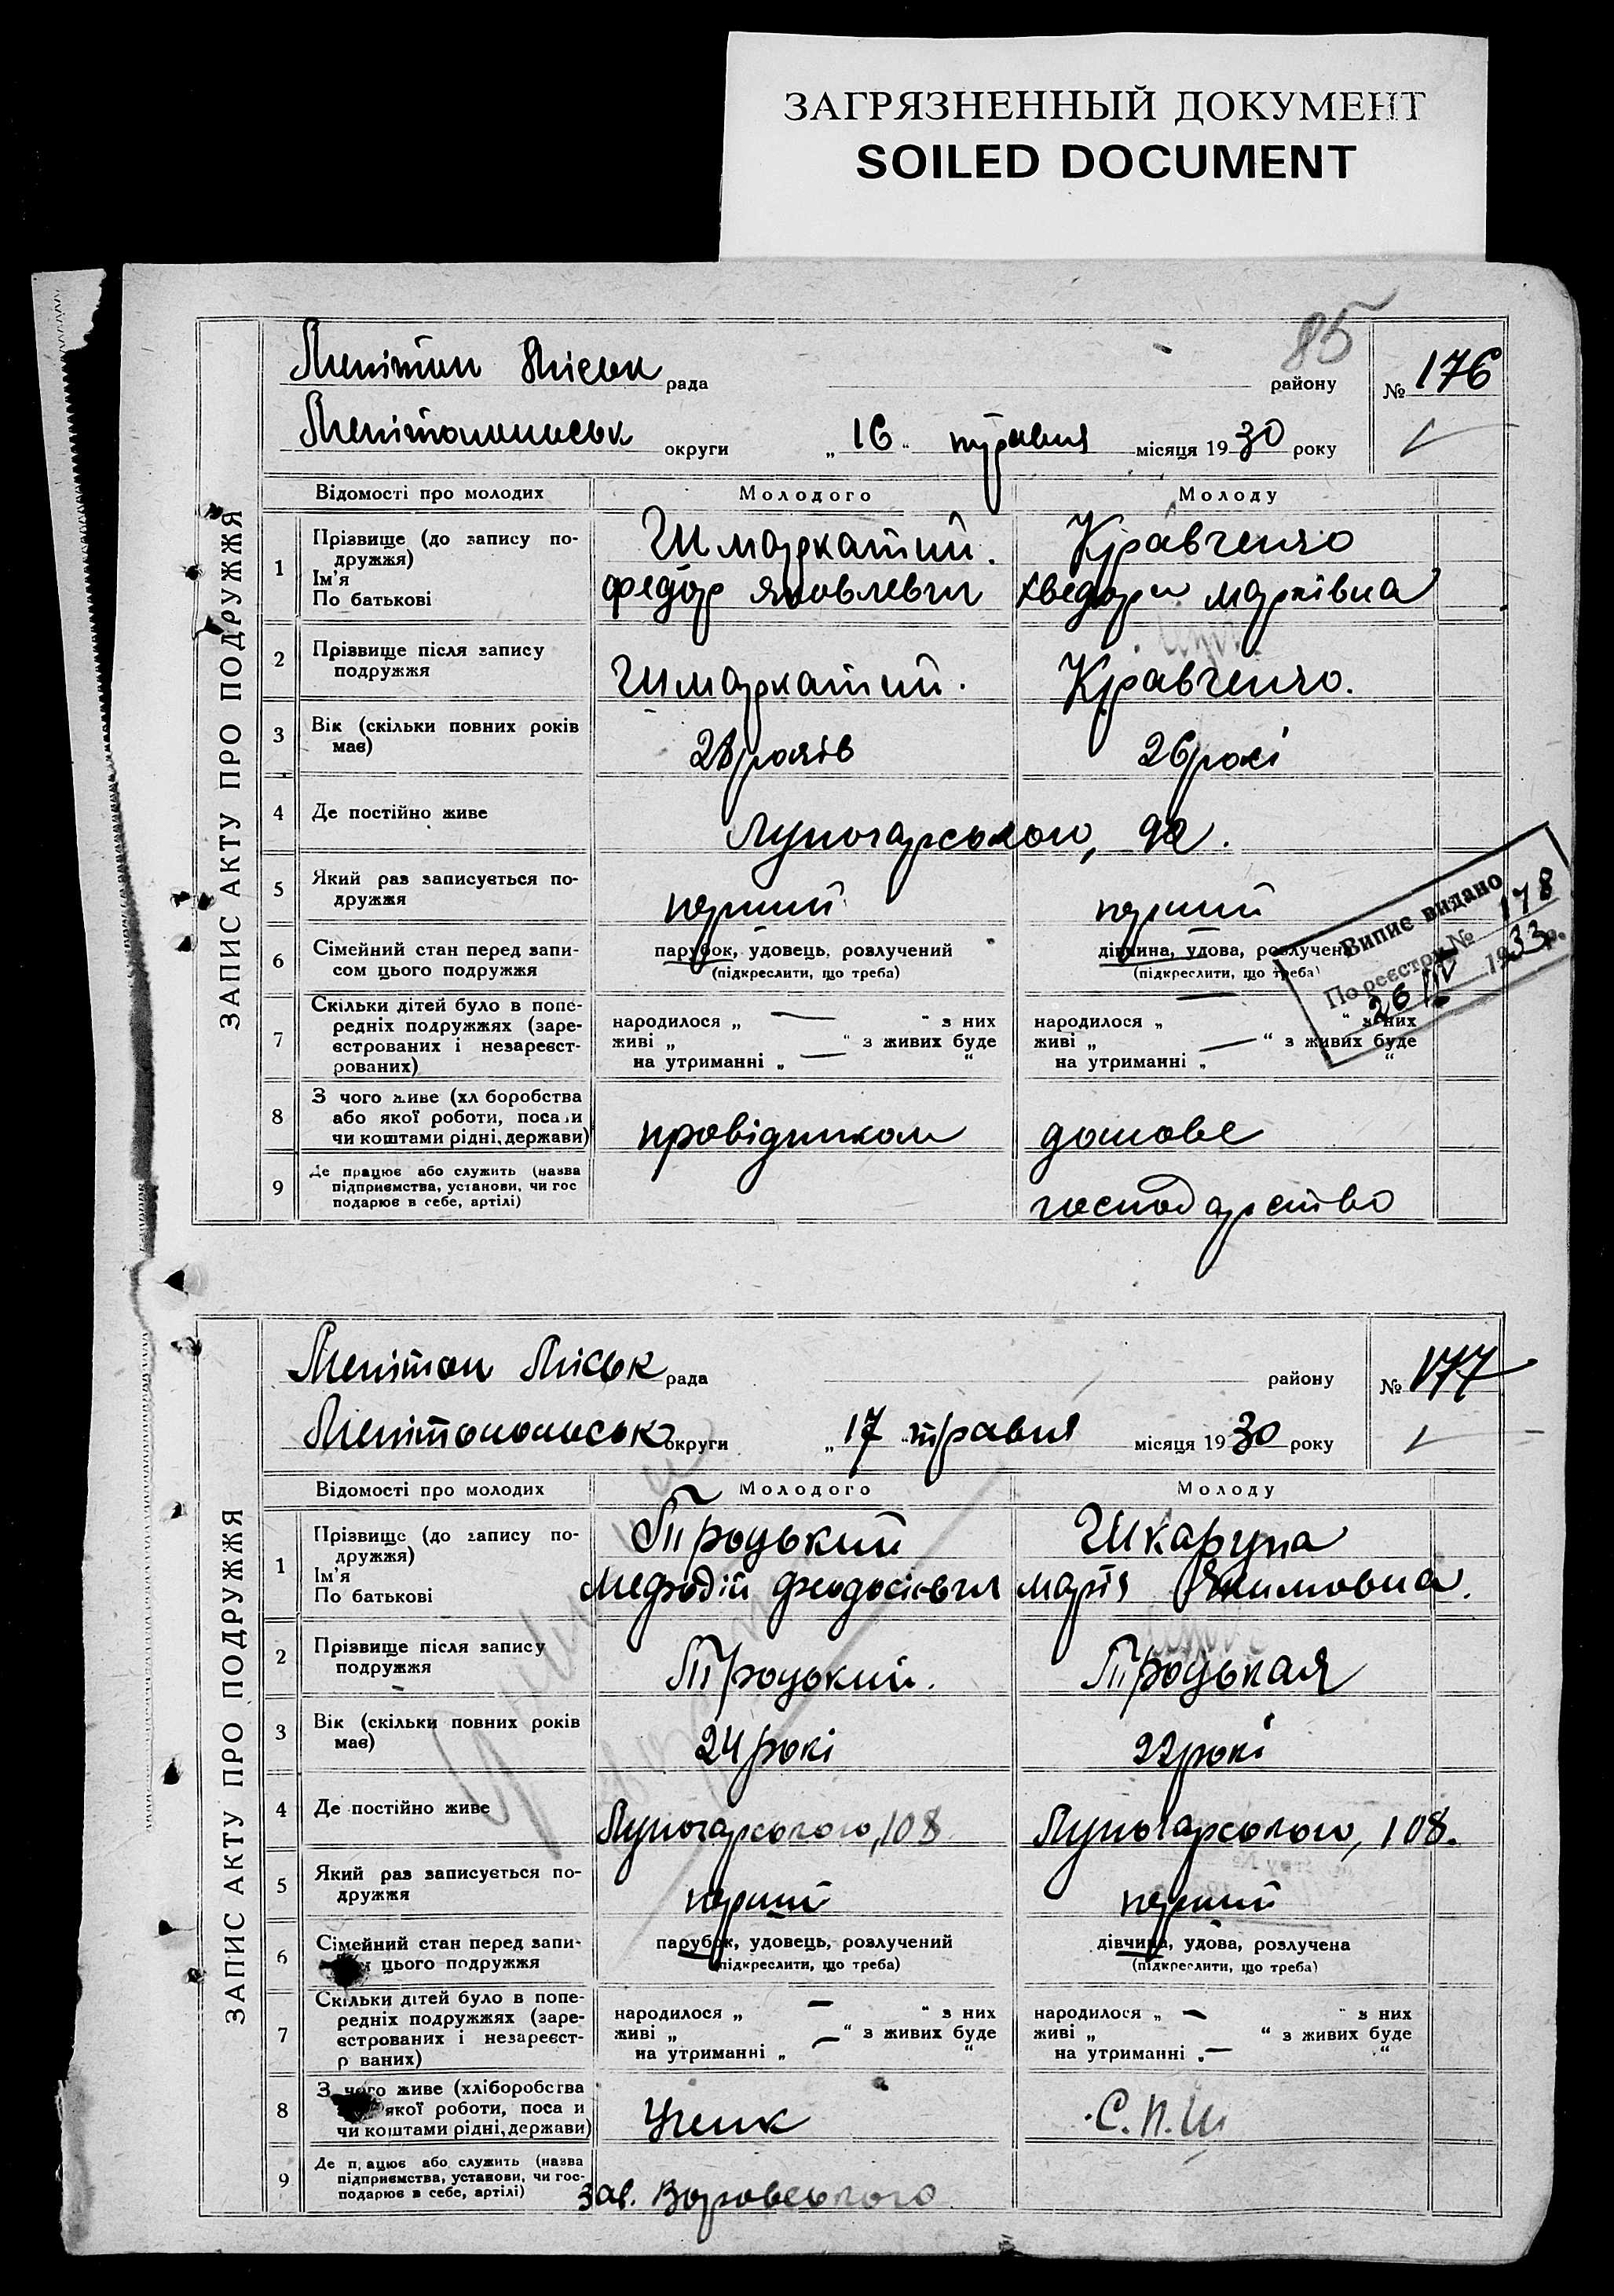 ЗАГРЯЗНЕННЫЙ ДОКУМЕНТ
SOILED DOCUMENT
85
ЗАПИС АКТУ ПРО ПОДРУЖЖЯ
Меліт рада району № 176
округи „ 16 “ травня місяця 1930 року
Відомості про молодих Молодого Молоду
1 Прізвище (до запису по-
дружжя)
Ім'я
По батькові
Шмаркатий. Кравченко
Федор Яковлевич Хведора Марківна
2 Прізвище після запису
подружжя
Шмаркатий. Кравченко.
3 Вік (скільки повних років
має)
28 років 26 рокі
4 Де постійно живе
Луначарського, 92.
5 Який раз записується по-
дружжя
перший перший
6 Сімейний стан перед запи-
сом цього подружжя
парубок, удовець, розлучений дівчина, удова, розлучена
(підкреслити, що треба) (підкреслити, що треба)
Випис видано
По реєстру № 178
26/IV 1933 р.
7 Скільки дітей було в попе-
редніх подружжях (заре-
єстрованих і незареєст-
рованих)
народилося „ — “ з них народилося „ — “ з них
живі „ “ з живих буде живі „ “ з живих буде
на утриманні „ — “ на утриманні „ — “
8 З чого живе (хл боробства
або якої роботи, поса и
чи коштами рідні, держави)
провідником домове
9 Де працює або служить (назва
підприємства, установи, чи гос
подарює в себе, артілі)
господарство
ЗАПИС АКТУ ПРО ПОДРУЖЖЯ
Меліт Міськ рада району № 177
округи „ 17 “ травня місяця 1930 року
Відомості про молодих Молодого Молоду
1 Прізвище (до запису по-
дружжя)
Ім'я
По батькові
Троцький Шкарупа
Мефодій Феодосієвич Марія Якимовна.
2 Прізвище після запису
подружжя
Троцький. Троцькая
3 Вік (скільки повних років
має)
24 рокі 22 рокі
4 Де постійно живе
Луначарського, 108 Луначарського, 108.
5 Який раз записується по-
дружжя
перший перший
6 Сімейний стан перед запи-
цього подружжя
парубок, удовець, розлучений дівчина, удова, розлучена
(підкреслити, що треба) (підкреслити, що треба)
7 Скільки дітей було в попе-
редніх подружжях (заре-
єстрованих і незареєст-
р ваних)
народилося „ — “ з них народилося „ — “ з них
живі „ — “ з живих буде живі „ “ з живих буде
на утриманні „ “ на утриманні „ — “
8 З чого живе (хліборобства
якої роботи, поса и
чи коштами рідні, держави)
Ученик С.П.Ш
9 Де п ацює або служить (назва
підприємства, установи, чи гос-
подарює в себе, артілі)
Зав. Воровського